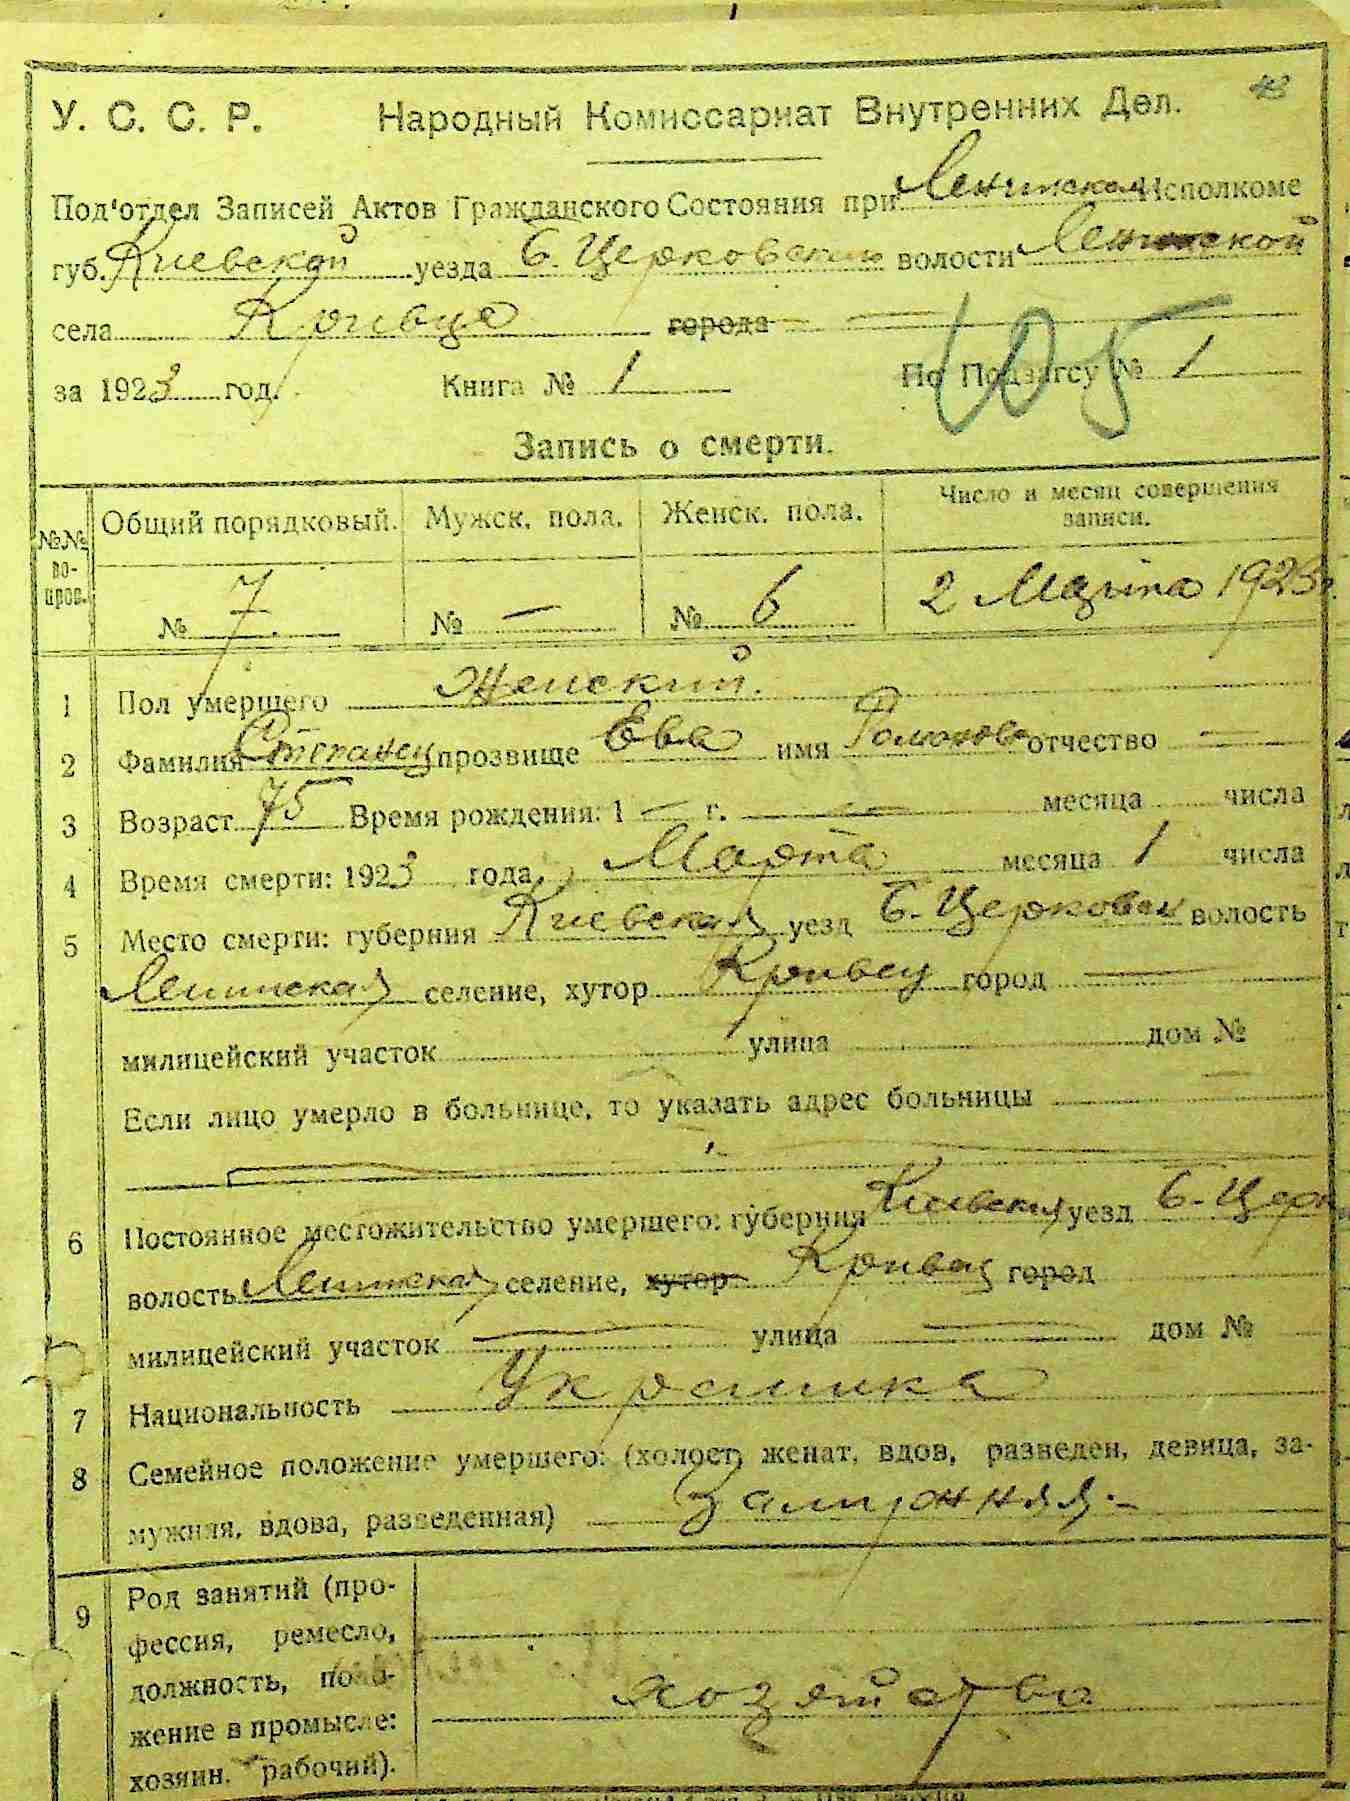 43
У. С. С. Р. Народный Комиссариат Внутренних Дел.
Под'отдел Записей Актов Гражданского Состояния при Ленинском Исполкоме
губ. Киевской уезда Б. Церковский волости Ленинской
села Кривца города
105
за 1923 год. Книга № 1 По Подзагсу № 1
Запись о смерти.
№№ Общий порядковый. Мужск. пола. Женск. пола. Число и месяц совершения записи.
№ 7 № — № 6 2 Марта 1923 г.
1 Пол умершего Женский.
2 Фамилия Степанец прозвище Ева имя отчество —
3 Возраст 75 Время рождения: 1 — г. — месяца числа
4 Время смерти: 1923 года, Марта месяца 1 числа
5 Место смерти: губерния Киевская уезд Б. Церковск волость
Ленинская селение, хутор Кривец город —
милицейский участок улица дом №
Если лицо умерло в больнице, то указать адрес больницы —
6 Постоянное местожительство умершего: губерния Киевская уезд Б-Церк
волость Ленинская селение, хутор Кривец город
милицейский участок — улица — дом №
7 Национальность Украинка
8 Семейное положение умершего: (холост, женат, вдов, разведен, девица, за-
мужняя, вдова, разведенная) Замужняя.-
9 Род занятий (про-
фессия, ремесло,
должность, поло-
жение в промысле:
хозяин, рабочий).
хозяйство